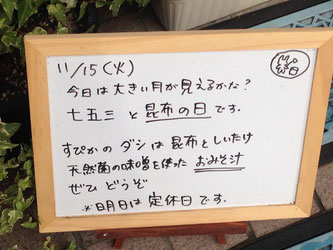 11/15(火)
今日は大きい月が見えるかな?
七五三 と 昆布の日 です。
すぴかの ダシ は 昆布としいたけ
天然菌の味噌を使った おみそ汁
ぜひ どうぞ
※日月日は 定休日 です。